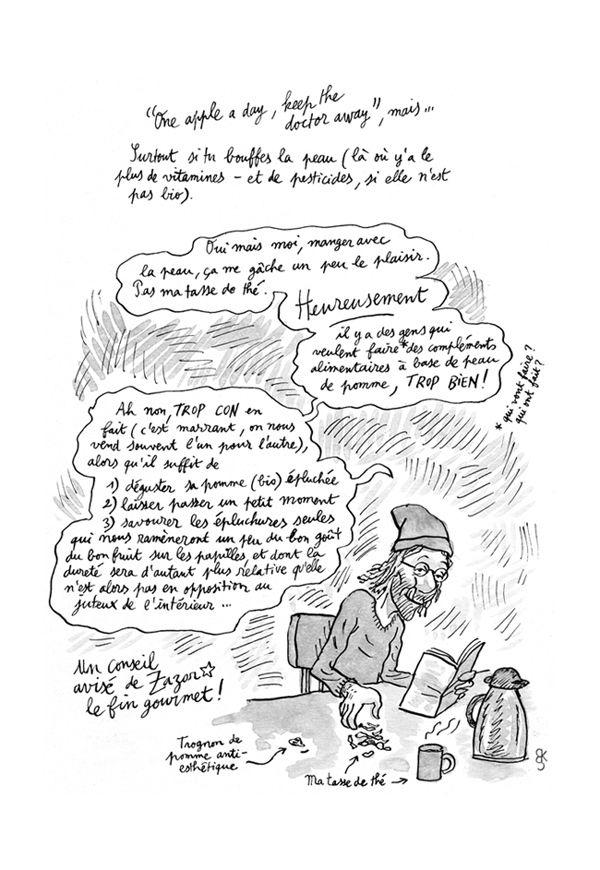 "One apple a day, keep the
doctor away", mais...
Surtout si tu bouffes la peau (là où y'a le
plus de vitamines - et de pesticides, si elle n'est
pas bio).
Oui mais moi, manger avec
la peau, ça me gâche un peu le plaisir.
Pas ma tasse de thé.
Heureusement
il y a des gens qui
veulent faire* des compléments
alimentaires à base de peau
de pomme, TROP BIEN !
* qui vont faire ?
qui ont fait ?
Ah non, TROP CON en
fait (c'est marrant, on nous
vend souvent l'un pour l'autre),
alors qu'il suffit de
1) déguster sa pomme (bio) épluchée
2) laisser passer un petit moment
3) savourer les épluchures seules
qui nous ramèneront un peu du bon goût
du bon fruit sur les papilles, et dont la
dureté sera d'autant plus relative qu'elle
n'est alors pas en opposition au
juteux de l'intérieur ...
Un conseil
avisé de Zazar☆
le fin gourmet !
Trognon de
pomme anti-
esthétique
Ma tasse de thé